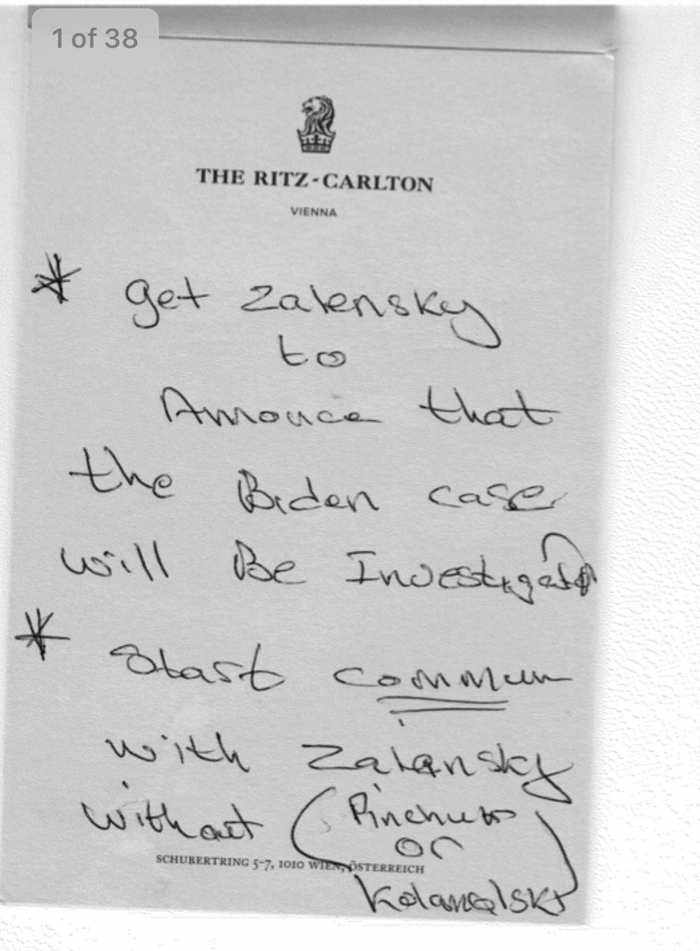 1 of 38
THE RITZ-CARLTON
VIENNA
* get Zalensky
to
Annouce that
the Biden case
will Be Investigated
* start commun
with Zalensky
without (Pinchuk
or
SCHUBERTRING 5-7, 1010 WIEN, ÖSTERREICH
Kolamolski)